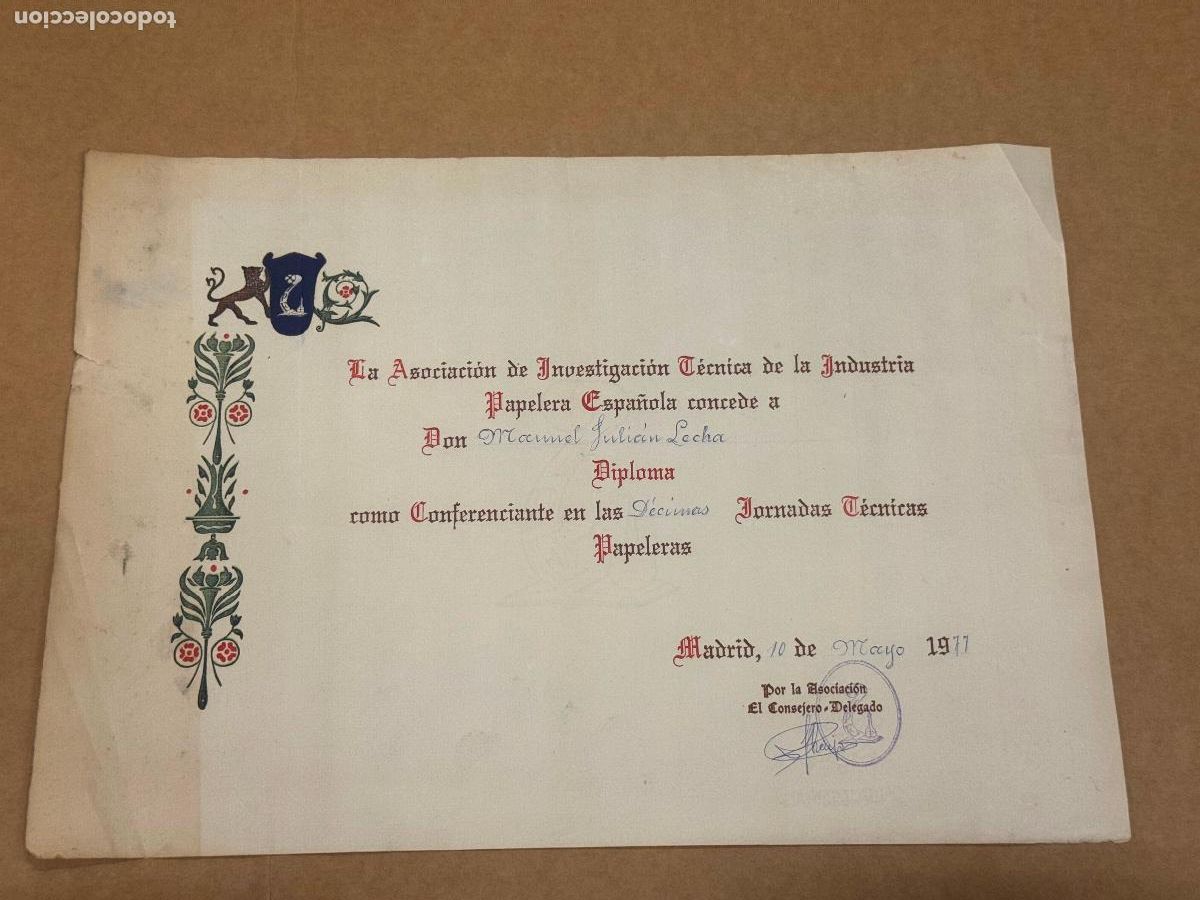 todocoleccion
La Asociación de Investigación Técnica de la Industria
Papelera Española concede a
Don Manuel Julián Lecha
Diploma
como Conferenciante en las Décimas Jornadas Técnicas
Papeleras
Madrid, 10 de Mayo 1977
Por la Asociación
El Consejero-Delegado